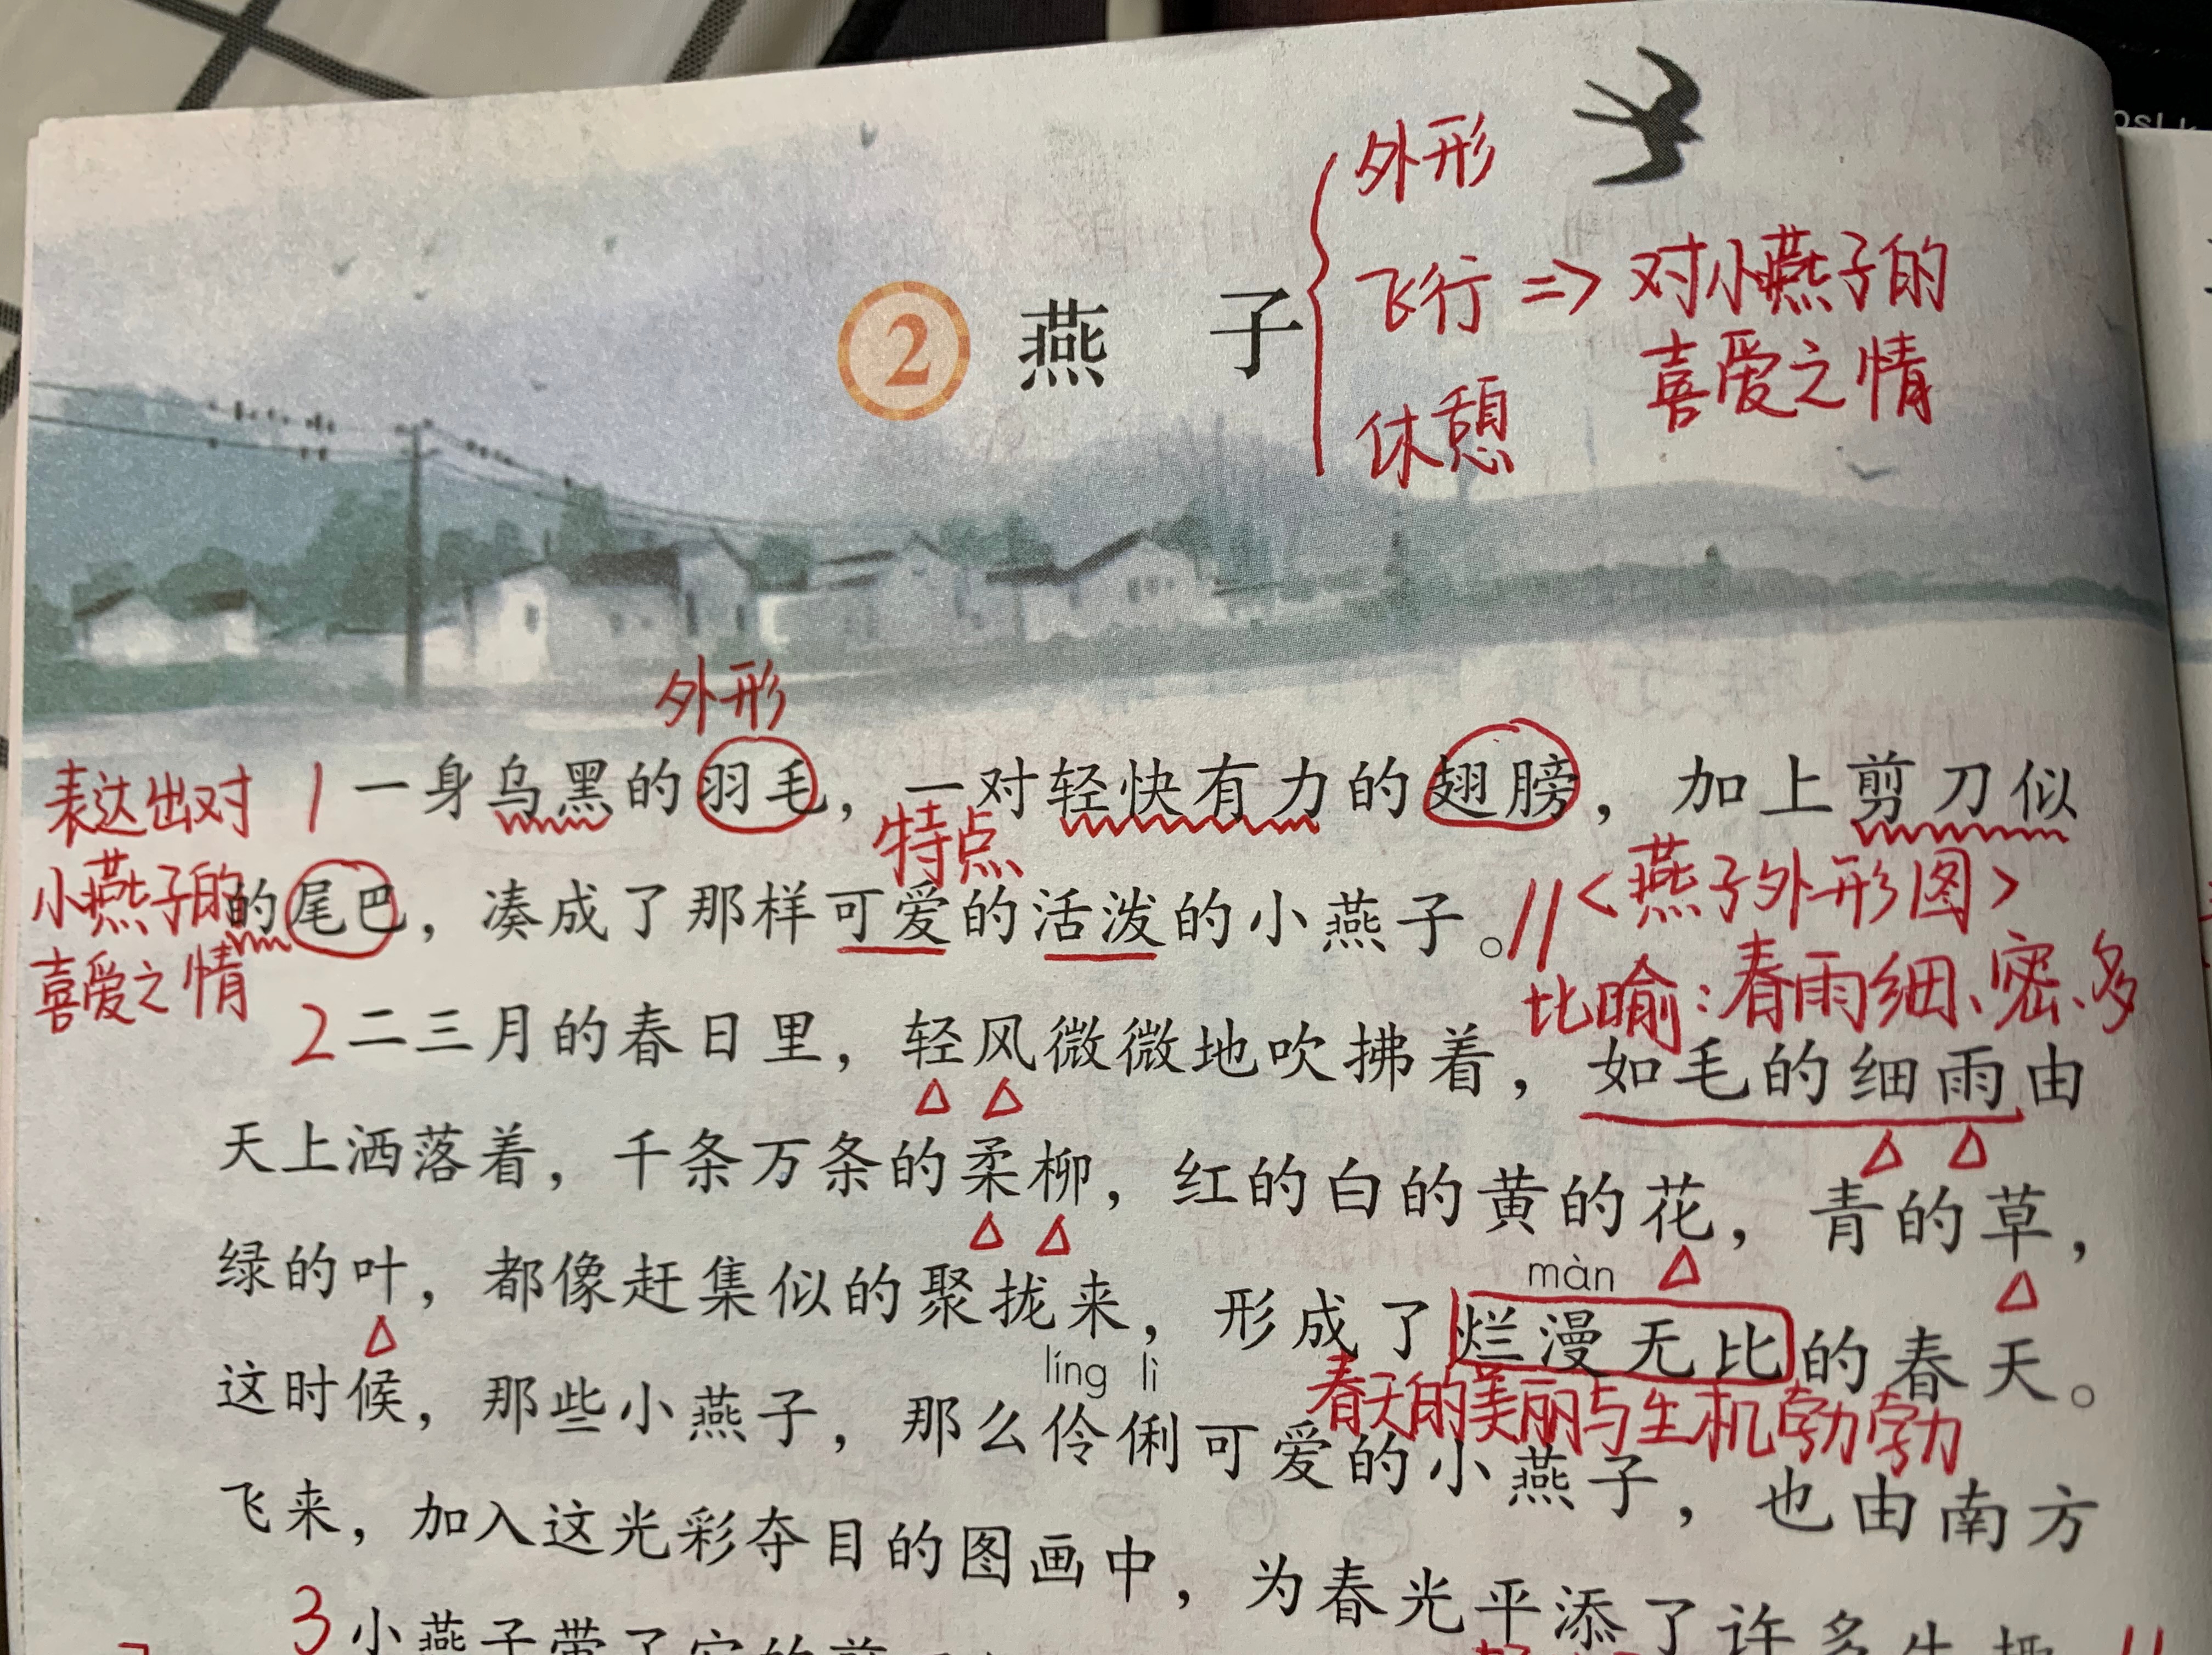 外形
② 燕子
飞行 => 对小燕子的
喜爱之情
休憩
外形
表达出对
小燕子的
喜爱之情
1 一身乌黑的羽毛，一对轻快有力的翅膀，加上剪刀似
特点
的尾巴，凑成了那样可爱的活泼的小燕子。// <燕子外形图>
比喻：春雨细、密、多
2 二三月的春日里，轻风微微地吹拂着，如毛的细雨由
天上洒落着，千条万条的柔柳，红的白的黄的花，青的草，
màn
绿的叶，都像赶集似的聚拢来，形成了烂漫无比的春天。
líng lì
春天的美丽与生机勃勃
这时候，那些小燕子，那么伶俐可爱的小燕子，也由南方
飞来，加入这光彩夺目的图画中，为春光平添了许多生趣
3 小燕子带了它的